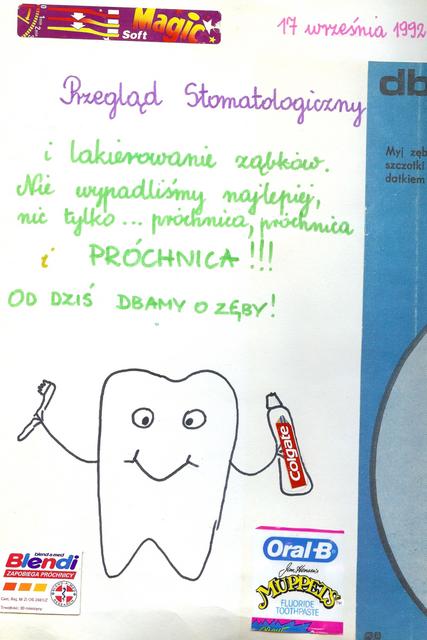 Soft Magic
17 września 1992
Przegląd Stomatologiczny
i lakierowanie ząbków.
Nie wypadliśmy najlepiej,
nic tylko... próchnica, próchnica
i PRÓCHNICA!!!
OD DZIŚ DBAMY O ZĘBY!
db
Myj zęb
szczotki
datkiem
Colgate
blend-a-med
Blendi
ZAPOBIEGA PRÓCHNICY
Oral-B
Jim Henson's
MUPPETS
FLUORIDE
TOOTHPASTE